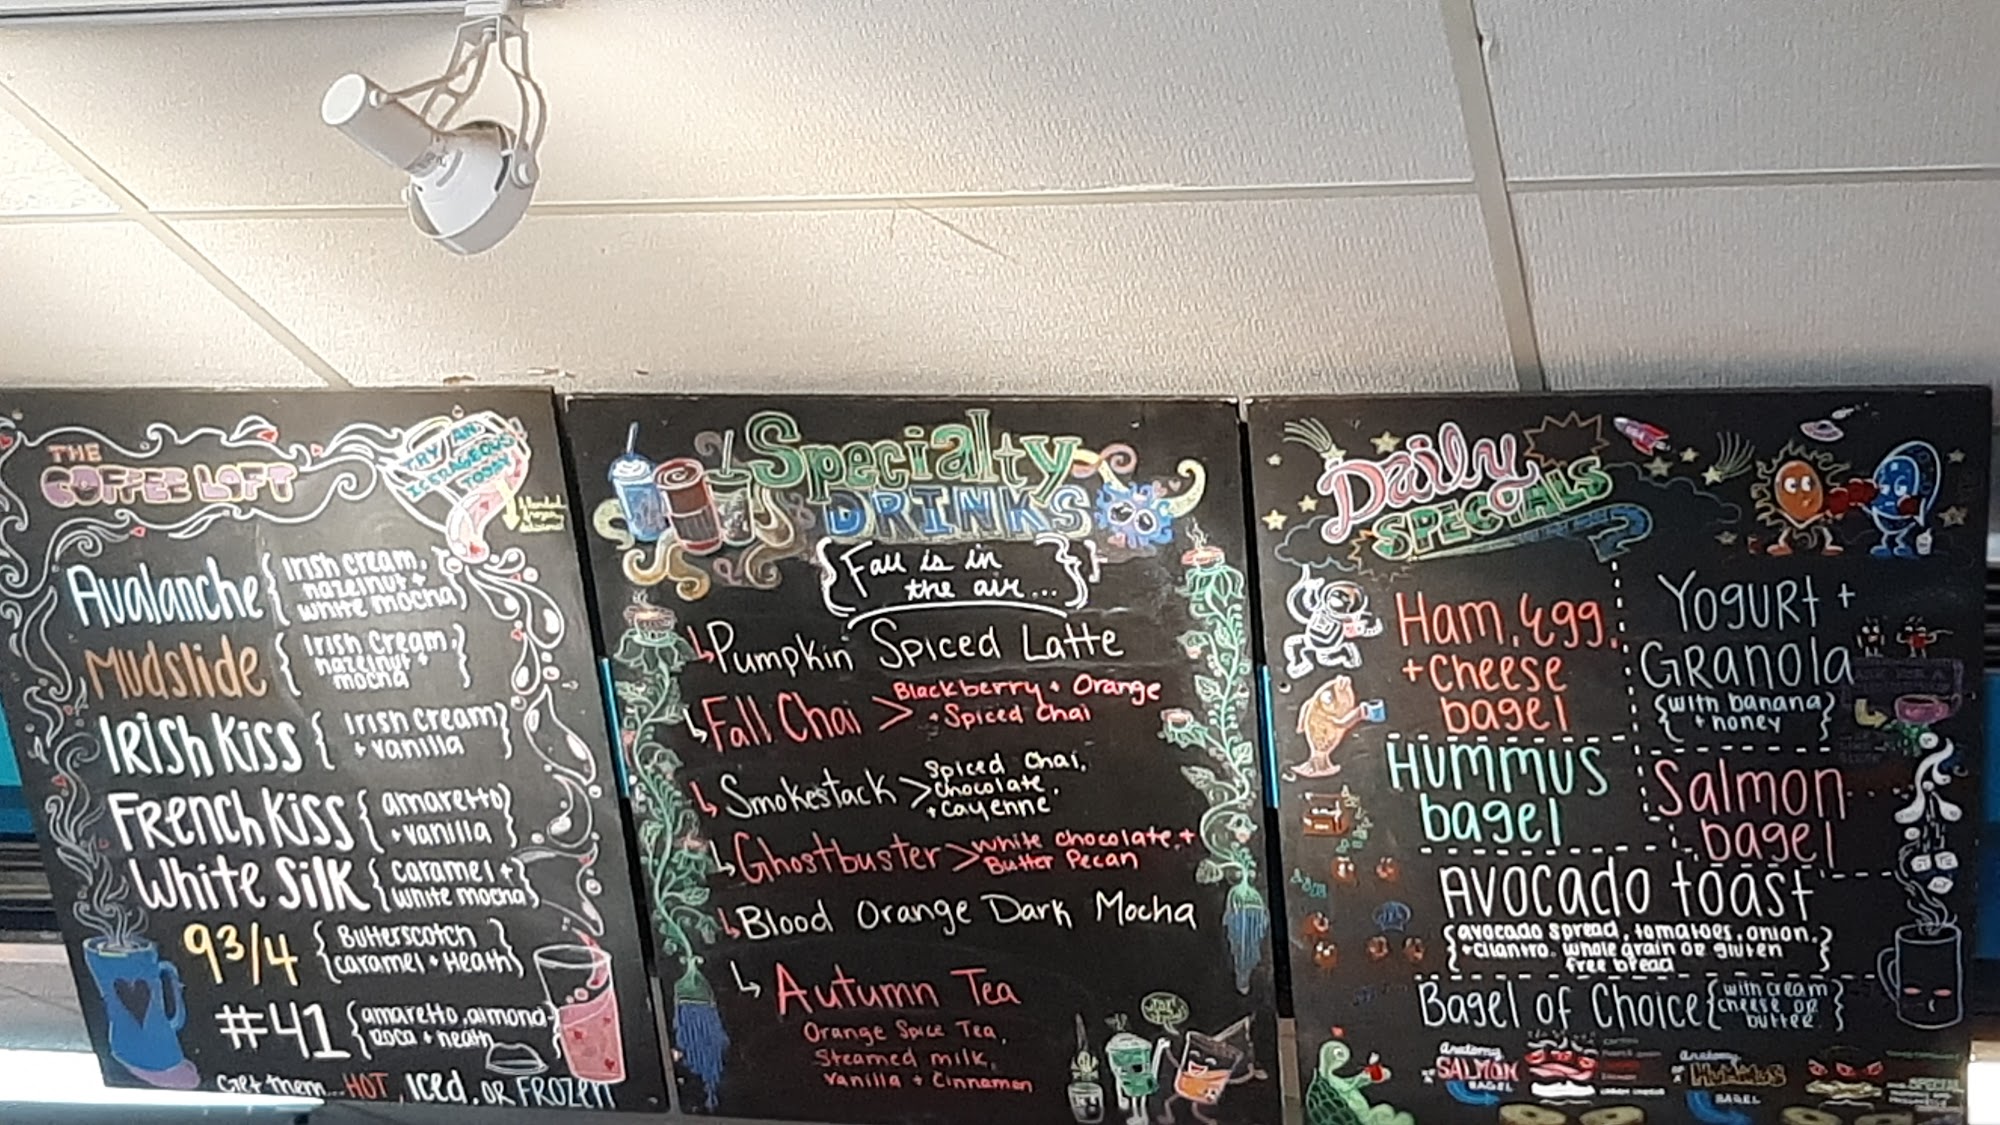 THE
COFFEE LOFT
TRY AN
TODAY
Avalanche { Irish cream,
hazelnut +
white mocha }
Mudslide { Irish Cream,
hazelnut +
mocha }
Irish Kiss { Irish Cream
+ vanilla }
French Kiss { amaretto
+ vanilla }
White Silk { caramel +
white mocha }
9 3/4 { Butterscotch
caramel + Heath }
#41 { amaretto, almond
roca + heath }
Get them... HOT, Iced, OR FROZEN
Specialty
DRINKS
{ Fall is in
the air... }
Pumpkin Spiced Latte
Fall Chai > Blackberry + Orange
+ Spiced Chai
Smokestack > Spiced Chai,
Chocolate,
+ Cayenne
Ghostbuster > White Chocolate +
Butter Pecan
Blood Orange Dark Mocha
Autumn Tea
Orange Spice Tea,
Steamed milk,
Vanilla + Cinnamon
Daily
SPECIALS
Ham, Egg,
+ Cheese
bagel
Yogurt +
Granola
{ with banana
+ honey }
Hummus
bagel
Salmon
bagel
Avocado toast
{ avocado spread, tomatoes, onion,
+ cilantro. whole grain or gluten
free bread }
Bagel of Choice { with cream
cheese or
butter }
Anatomy
SALMON
BAGEL
Anatomy
HUMMUS
BAGEL